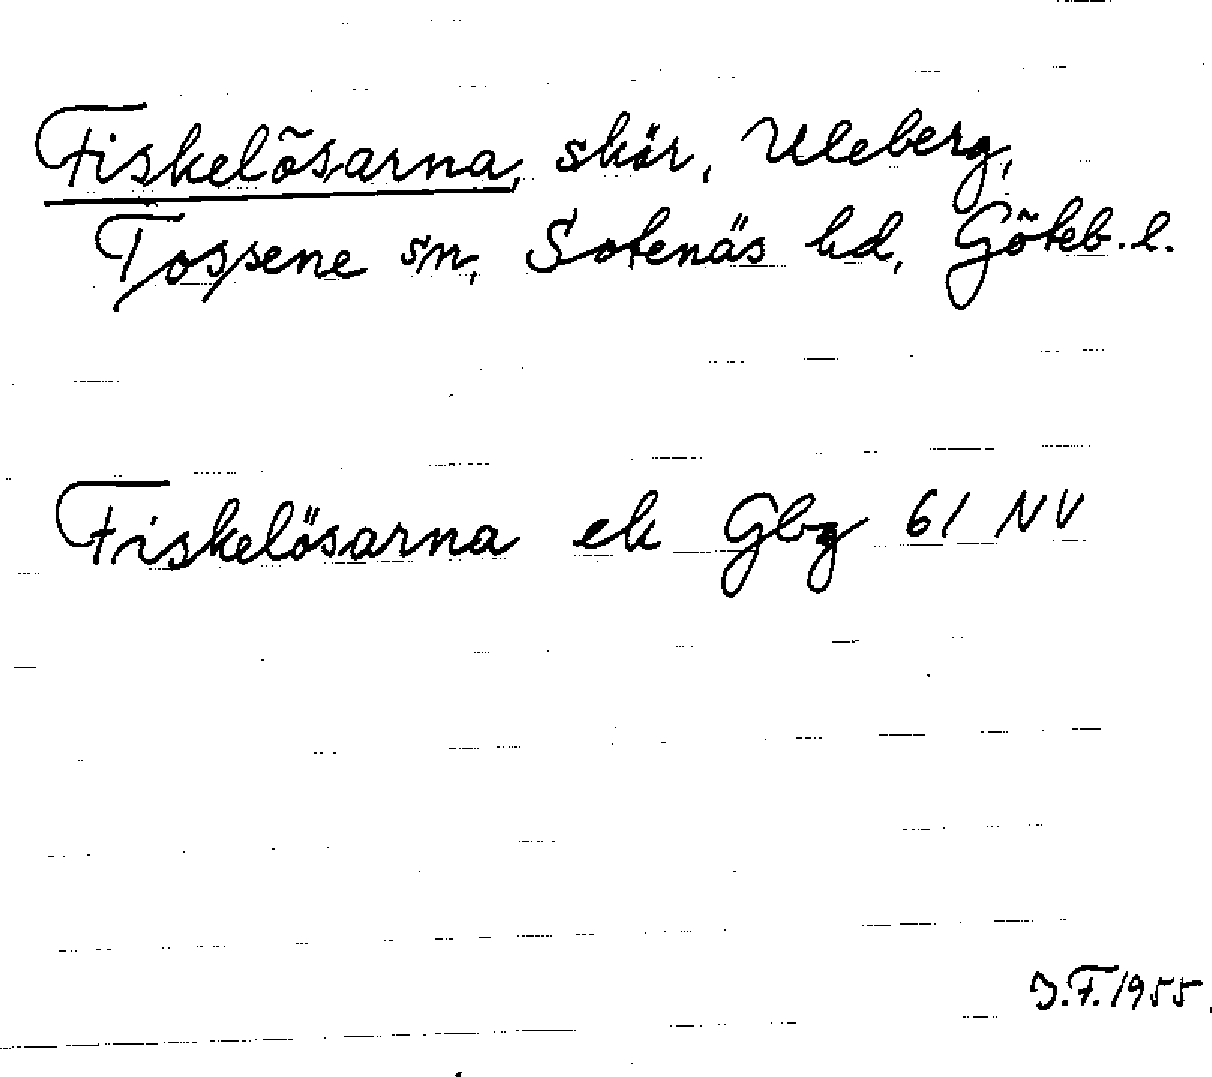 Fiskelösarna, skär, Uleberg,
Tossene sn, Sotenäs hd, Göteb. l.
Fiskelösarna ek Gbg 61 NV
J.F. 1955.